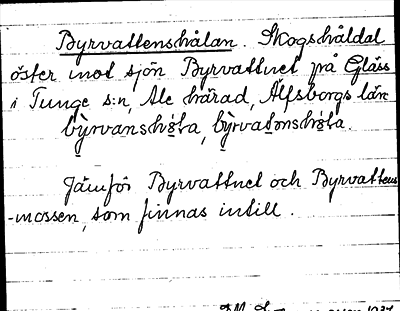 Byrvattenshålan. Skogshåldal
öster invt sjön Byrvattnet på Gläss
i Tunge s:n, Ale härad, Älfsborgs län
býrvansho̱ḷa, býrvatǝnsho̱ḷa.
Jämför Byrvattnet och Byrvattens
-mossen, som finnas intill.